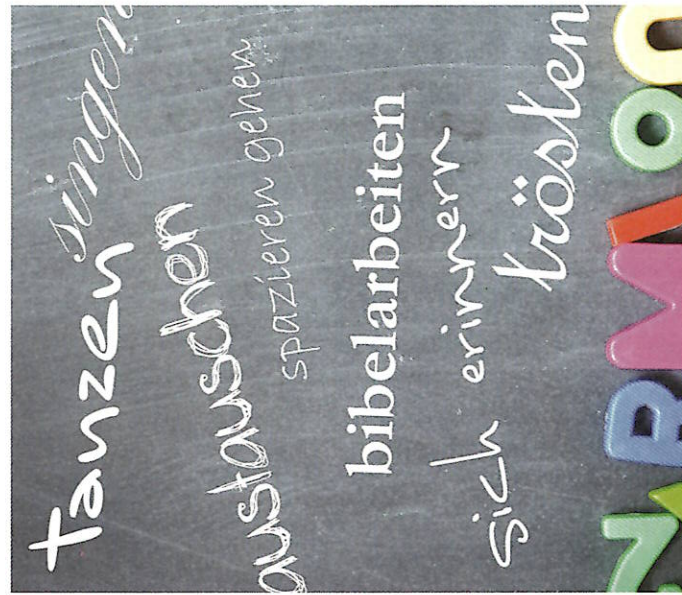 tanzen singen
austauschen
spazieren gehen
bibelarbeiten
sich erinnern
trösten